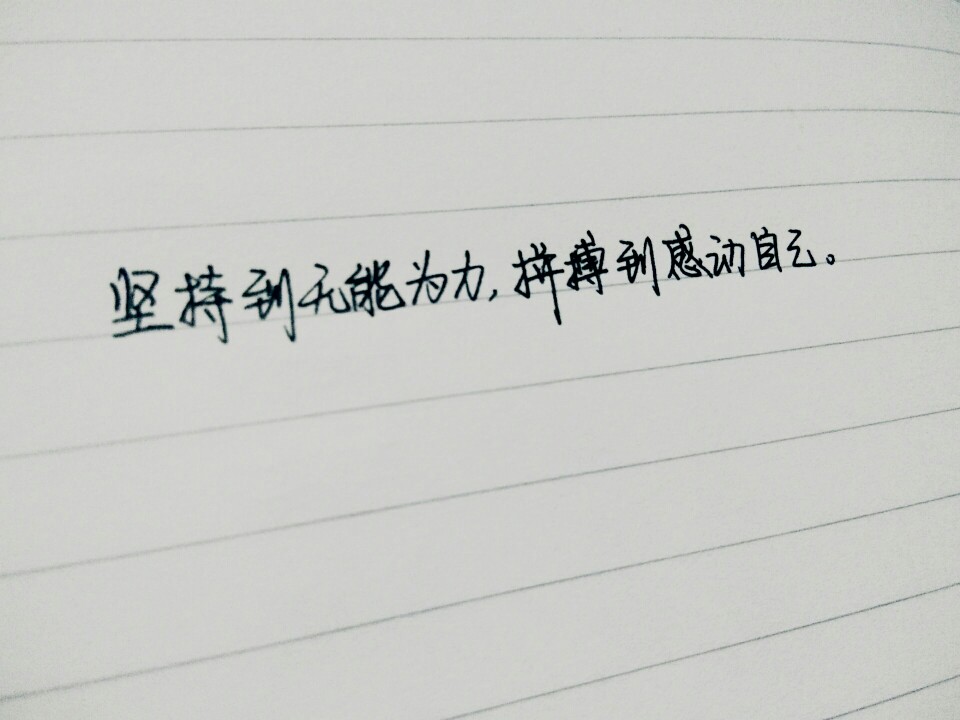 坚持到无能为力,拼搏到感动自己。